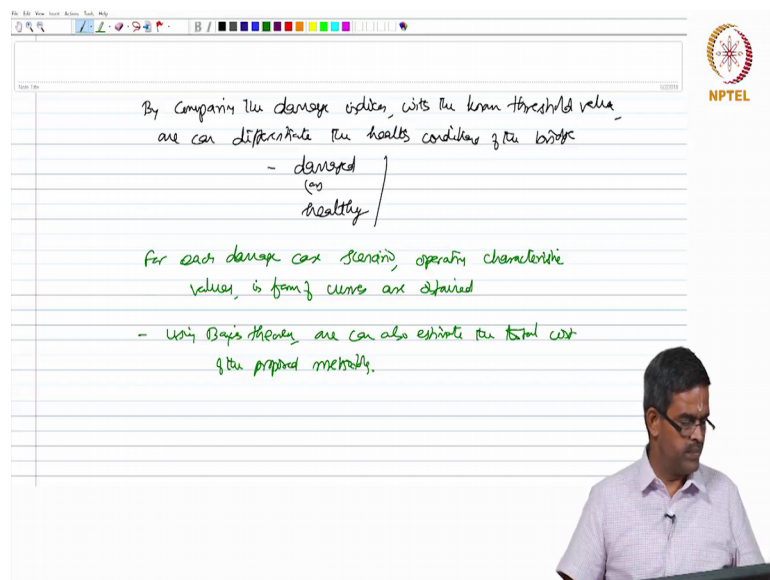 File Edit View Insert Actions Tools Help
B I
NPTEL
Note Title
By comparing the damage indices, with the known threshold value,
one can differentiate the health condition of the bridge
- damaged
(or)
healthy
For each damage case scenario, operating characteristic
values, in form of curves are obtained
- Using Baye's theorem, one can also estimate the total cost
of the proposed